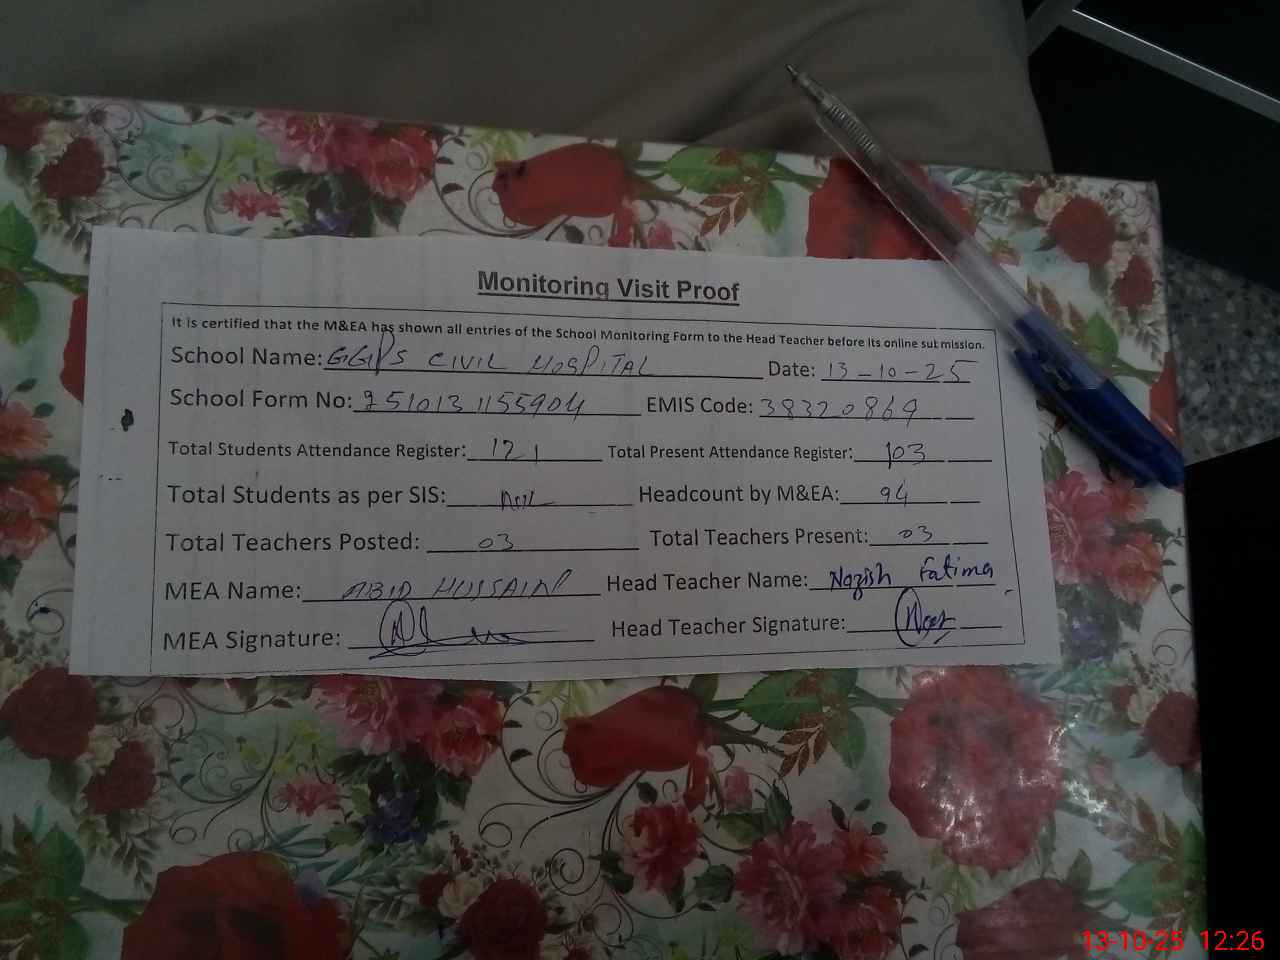 Monitoring Visit Proof
It is certified that the M&EA has shown all entries of the School Monitoring Form to the Head Teacher before its online submission.
School Name: GGPS CIVIL HOSPITAL Date: 13-10-25
School Form No: 251013 1155904 EMIS Code: 38320869
Total Students Attendance Register: 121 Total Present Attendance Register: 103
Total Students as per SIS: Nil Headcount by M&EA: 94
Total Teachers Posted: 03 Total Teachers Present: 03
MEA Name: ABID HUSSAIN Head Teacher Name: Nazish Fatima
MEA Signature: Head Teacher Signature:
13-10-25 12:26